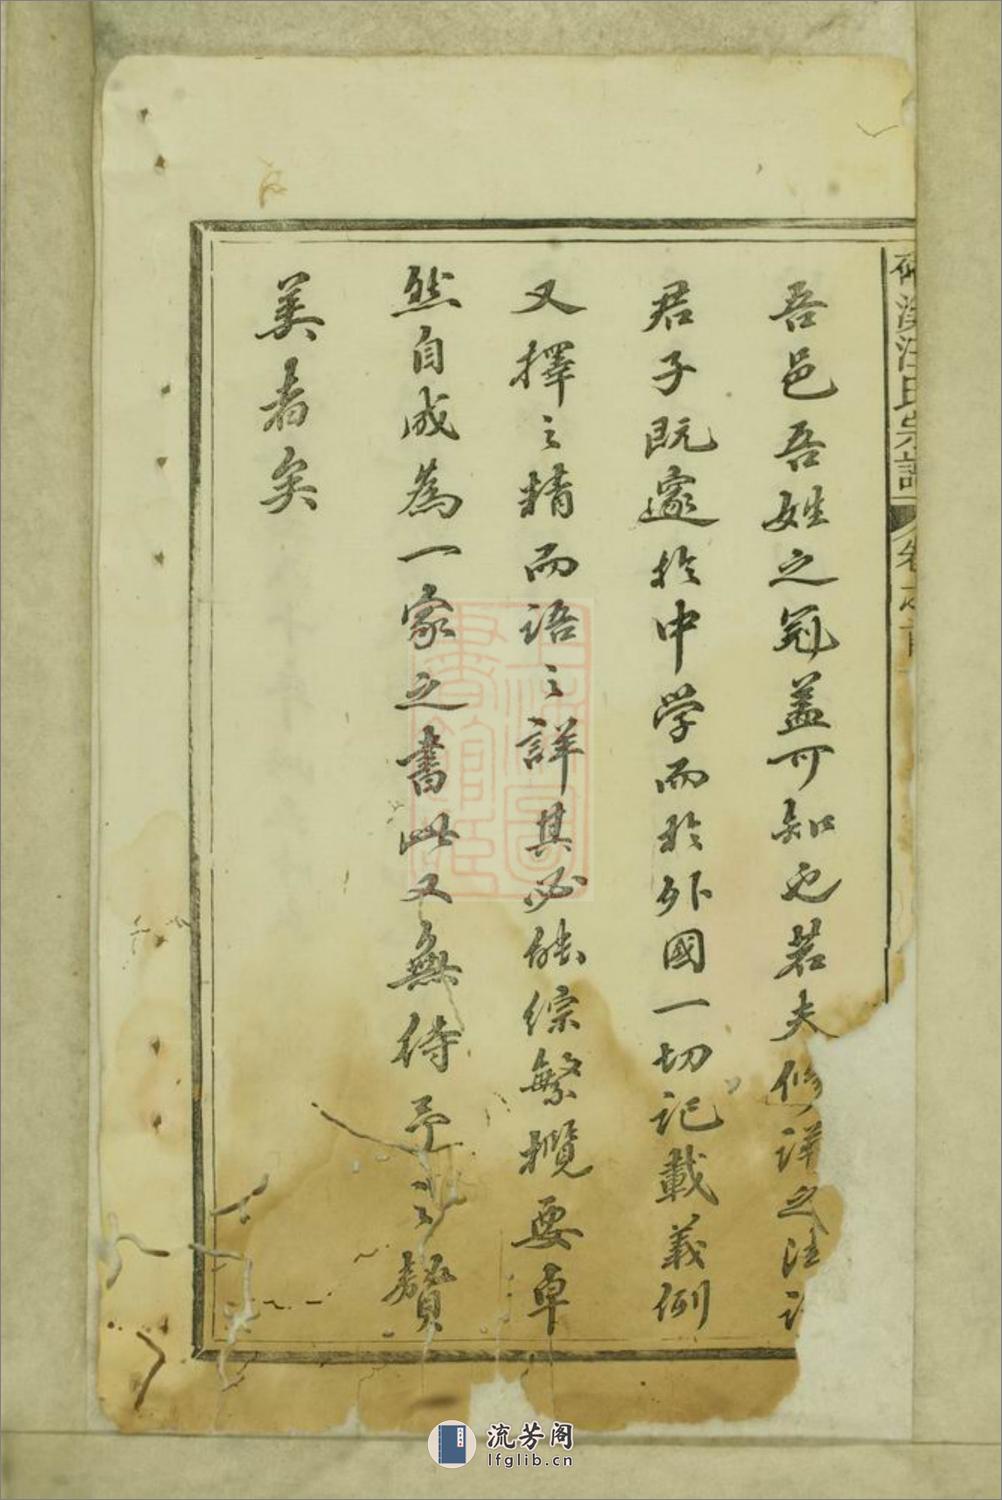 漢汪氏宗譜
卷之首
吾邑吾姓之冠蓋可知也若夫修譜之法
君子既邃於中学而於外國一切記載義例
又擇之精而語之詳其必能綜繁攬要卓
然自成為一家之書此又無待予之贊
美者矣
上海圖書館藏
流芳阁
lfglib.cn